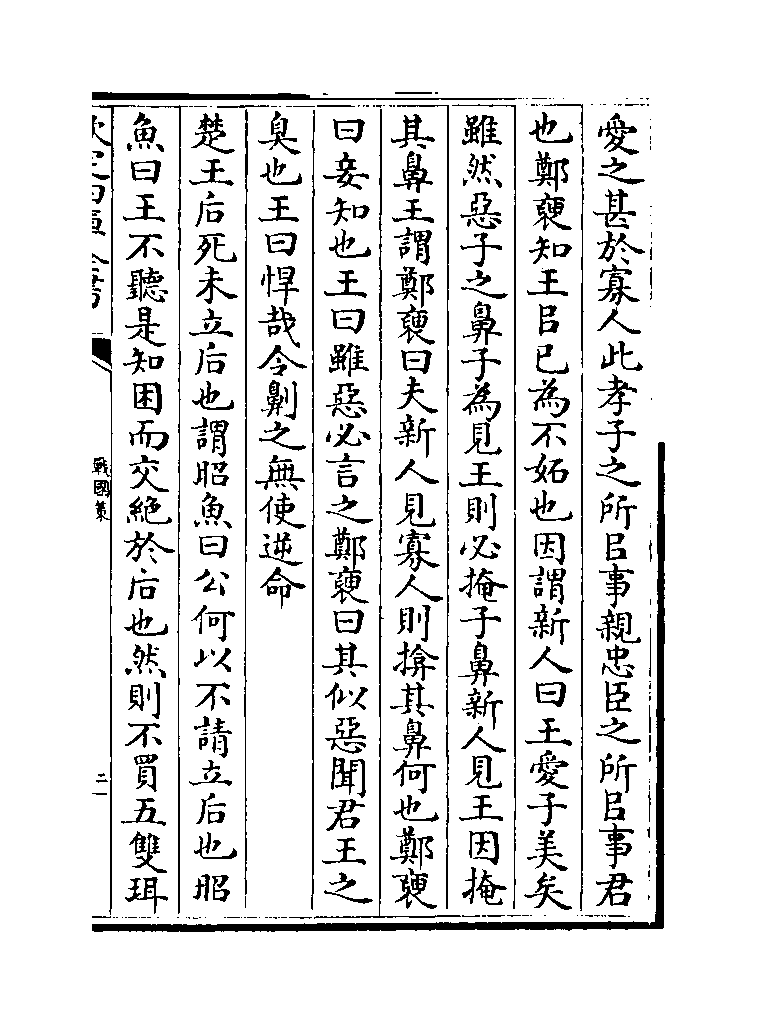 愛之甚於寡人此孝子之所㠯事親忠臣之所㠯事君
也鄭褏知王㠯已為不妬也因謂新人曰王愛子美矣
雖然惡子之鼻子為見王則必掩子鼻新人見王因掩
其鼻王謂鄭褏曰夫新人見寡人則揜其鼻何也鄭褏
曰妾知也王曰雖惡必言之鄭褏曰其似惡聞君王之
臭也王曰悍哉令劓之無使逆命
楚王后死未立后也謂昭魚曰公何以不請立后也昭
魚曰王不聽是知困而交絶於后也然則不買五雙珥
戰國策